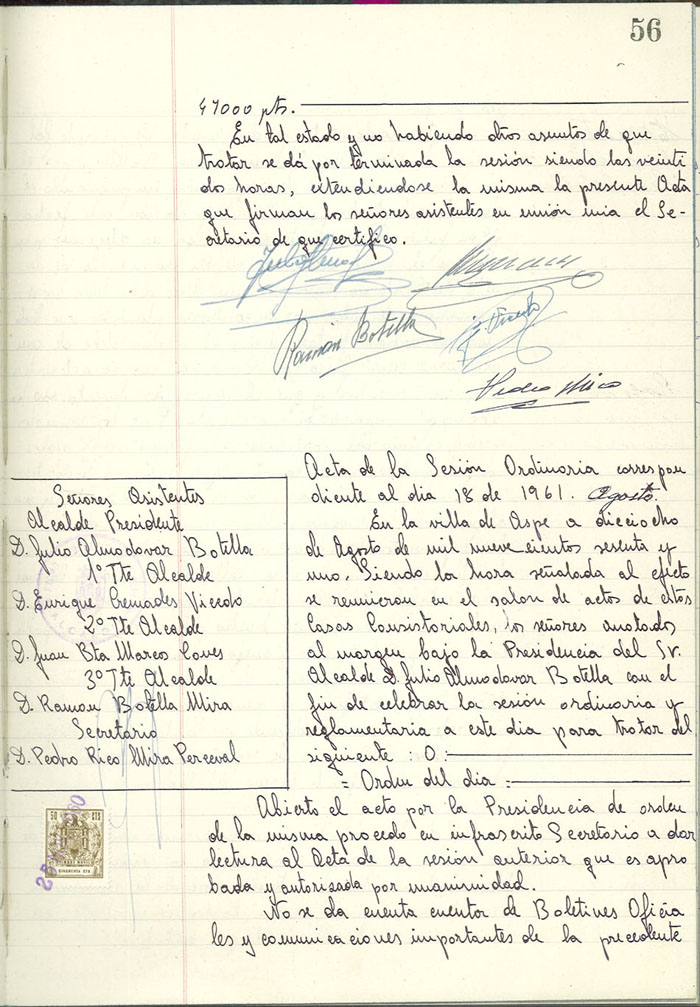 56
47000 pts.
En tal estado y no habiendo otros asuntos de que
tratar se dá por terminada la sesión siendo las veinti
dos horas, extendiendose la misma la presente Acta
que firman los señores asistentes en unión mia el Se-
cretario de que certifico.
Ramón Botella
Pedro Mico
Señores Asistentes
Alcalde Presidente
D. Julio Almodovar Botella
1º Tte Alcalde
D. Enrique Cremades Vicedo
2º Tte Alcalde
D. Juan Bta Marcos Coves
3º Tte Alcalde
D. Ramon Botella Mira
Secretario
D. Pedro Rico Mira Perceval
Acta de la Sesión Ordinaria correspon
diente al dia 18 de 1961. Agosto.
En la villa de Aspe a dieciocho
de Agosto de mil nueve cientos sesenta y
uno. Siendo la hora señalada al efecto
se reunieron en el salon de actos de estas
Casas Consistoriales, los señores anotados
al margen bajo la Presidencia del Sr.
Alcalde D. Julio Almodovar Botella con el
fin de celebrar la sesión ordinaria y
reglamentaria a este dia para tratar del
siguiente : O :
= Orden del dia :=
Abierto el acto por la Presidencia de orden
de la misma procedo en infrascrito Secretario a dar
lectura al Acta de la sesión anterior que es apro
bada y autorizada por unanimidad.
No se da cuenta cuentor de Boletines Oficia
les y comunicaciones importantes de la precedente
50 CTS
CINCUENTA CTS